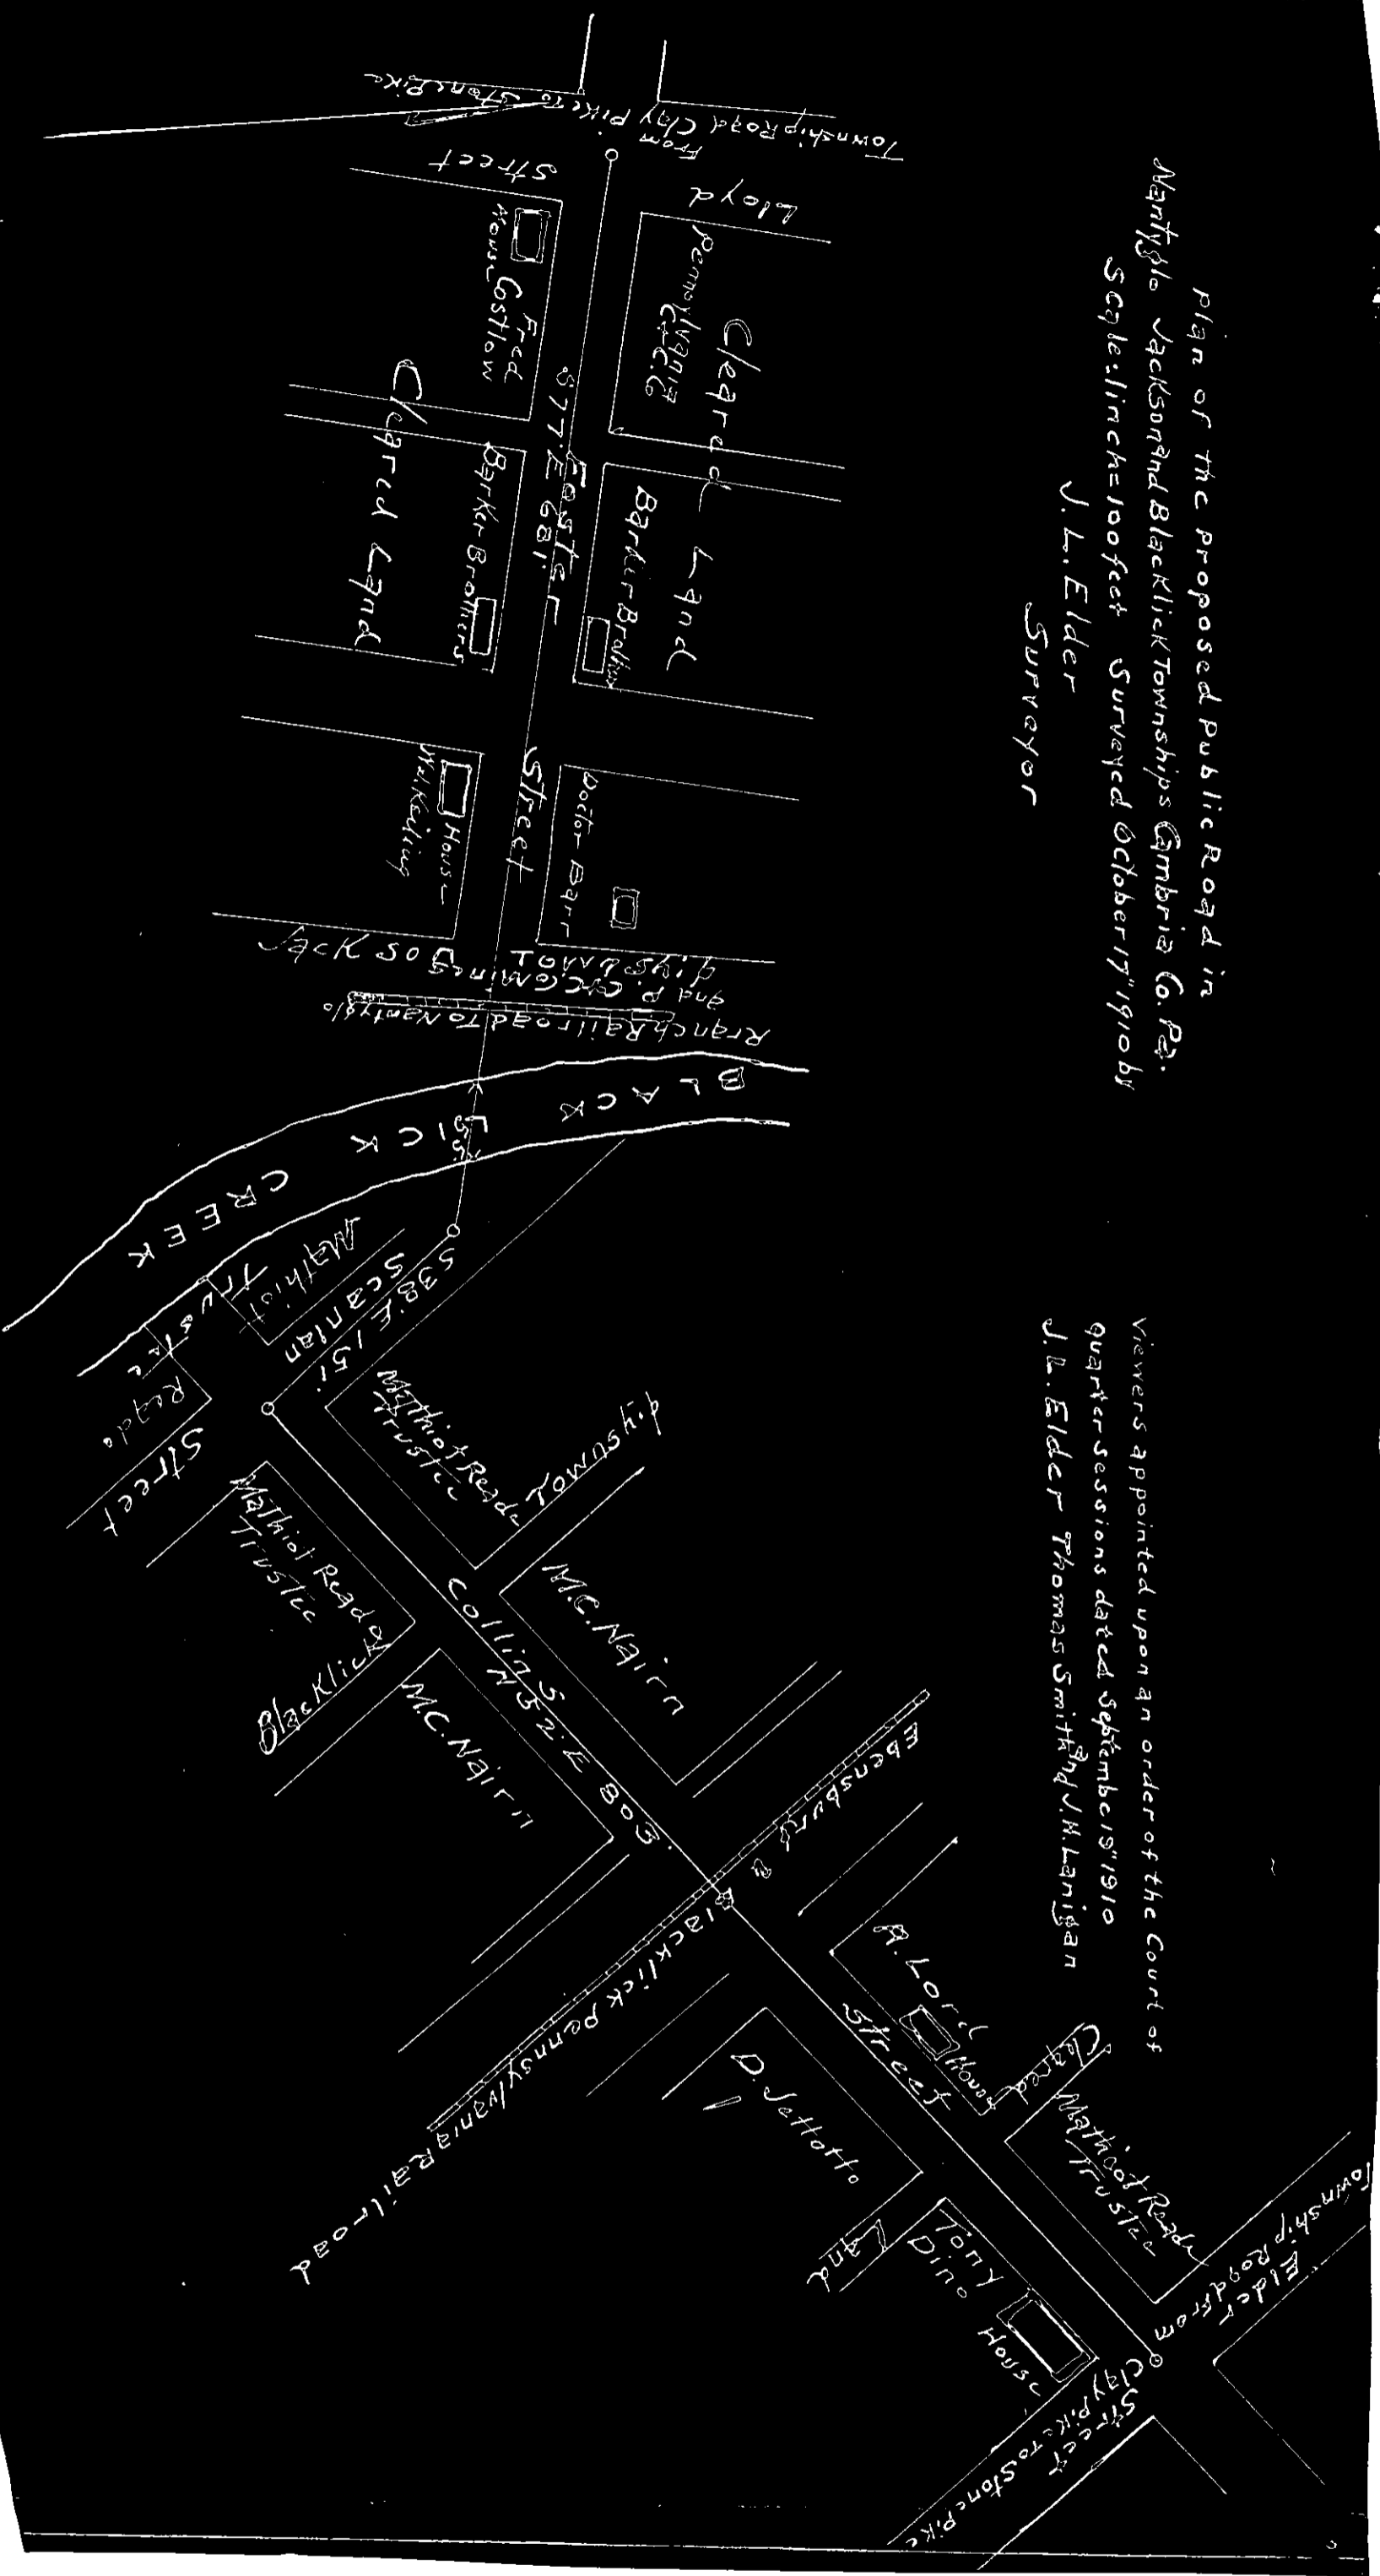 Plan of the Proposed Public Road in
Nantyglo Jackson and Blacklick Townships Cambria Co. Pa.
Scale. 1 inch = 100 feet Surveyed October 17" 1910 by
J. L. Elder
Surveyor
Viewers appointed upon an order of the Court of
quarter sessions dated September 19" 1910
J. L. Elder Thomas Smith and J. H. Lanigan
Township Road Clay Pike to Stone Pike
From
Lloyd
Street
Pennsylvania
C. & C. Co
Cleared Land
House
Fred
Costlow
Cleared Land
S 77° E 681'
Foster
Street
Barker Brothers
Barker Brothers
Doctor Barr
House
Jackson
Township
Branch Railroad To Nantyglo
and P. C. & C. Co Mines
BLACK
LICK
CREEK
55'
S 38° E 151'
Scanlan
Street
Mathiot
Trustee
Reade
Mathiot Reade
Trustee
Mathiot Reade
Trustee
Blacklick
Township
M.C. Nairn
M.C. Nairn
Collins
N 52° E 803'
Street
Ebensburg &
Blacklick Pennsylvania Railroad
A. Lord
House
D. Jettotto
Cleared
Land
Mathiot Reade
Trustee
Tony
Dino
House
Elder
Street
Township Road From
Clay Pike To Stone Pike